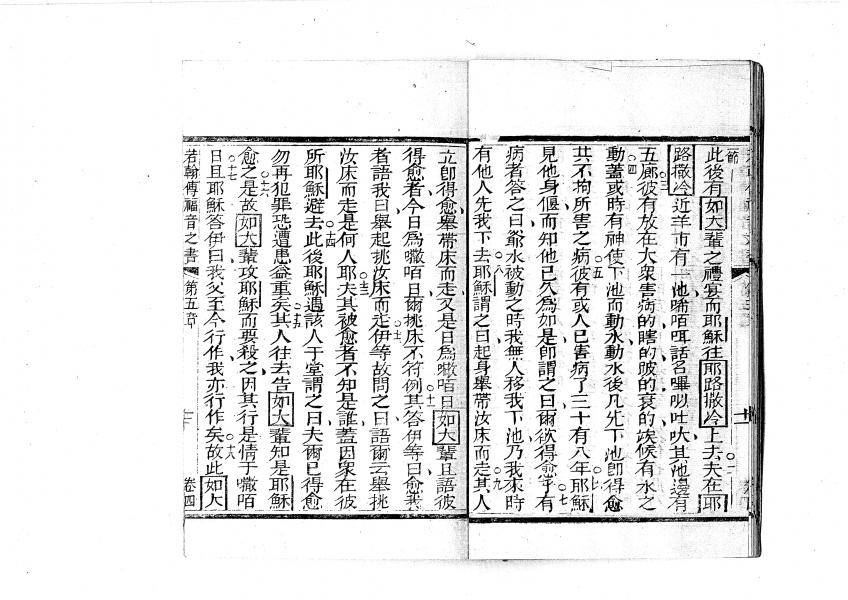 此後有如大輩之禮宴而耶穌往耶路撒冷上去夫在耶
路撒冷近羊市有一池唏咟咡話名嗶吣吐吹其池邊有
五廊彼有放在大眾害病的瞎的跛的衰的俟候有水之
動蓋或時有神使下池而動水動水後凡先下池卽得愈
其不拘所害之病彼有或人已害病了三十有八年耶穌
見他身偃而知他已久為如是卽謂之曰爾欲得愈乎有
病者答之曰爺水被動之時我無人移我下池乃我來時
有他人先我下去耶穌謂之曰起身舉帶汝床而走其人
立卽得愈舉帶床而走又是日為嚈咟日如大輩且語彼
得愈者今日為嚈咟日爾挑床不符例其答伊等曰愈我
者語我曰舉起挑汝床而走伊等故問之曰語爾云舉挑
汝床而走是何人耶夫其被愈者不知是誰蓋因眾在彼
所耶穌避去此後耶穌遇該人于堂謂之曰夫爾已得愈
勿再犯罪恐遭患益重矣其人往去告如大輩知是耶穌
愈之是故如大輩攻耶穌而要殺之因其行是情于嚈咟
日且耶穌答伊曰我父至今行作我亦行作矣故此如大
若翰傳福音之書 第五章 卷四